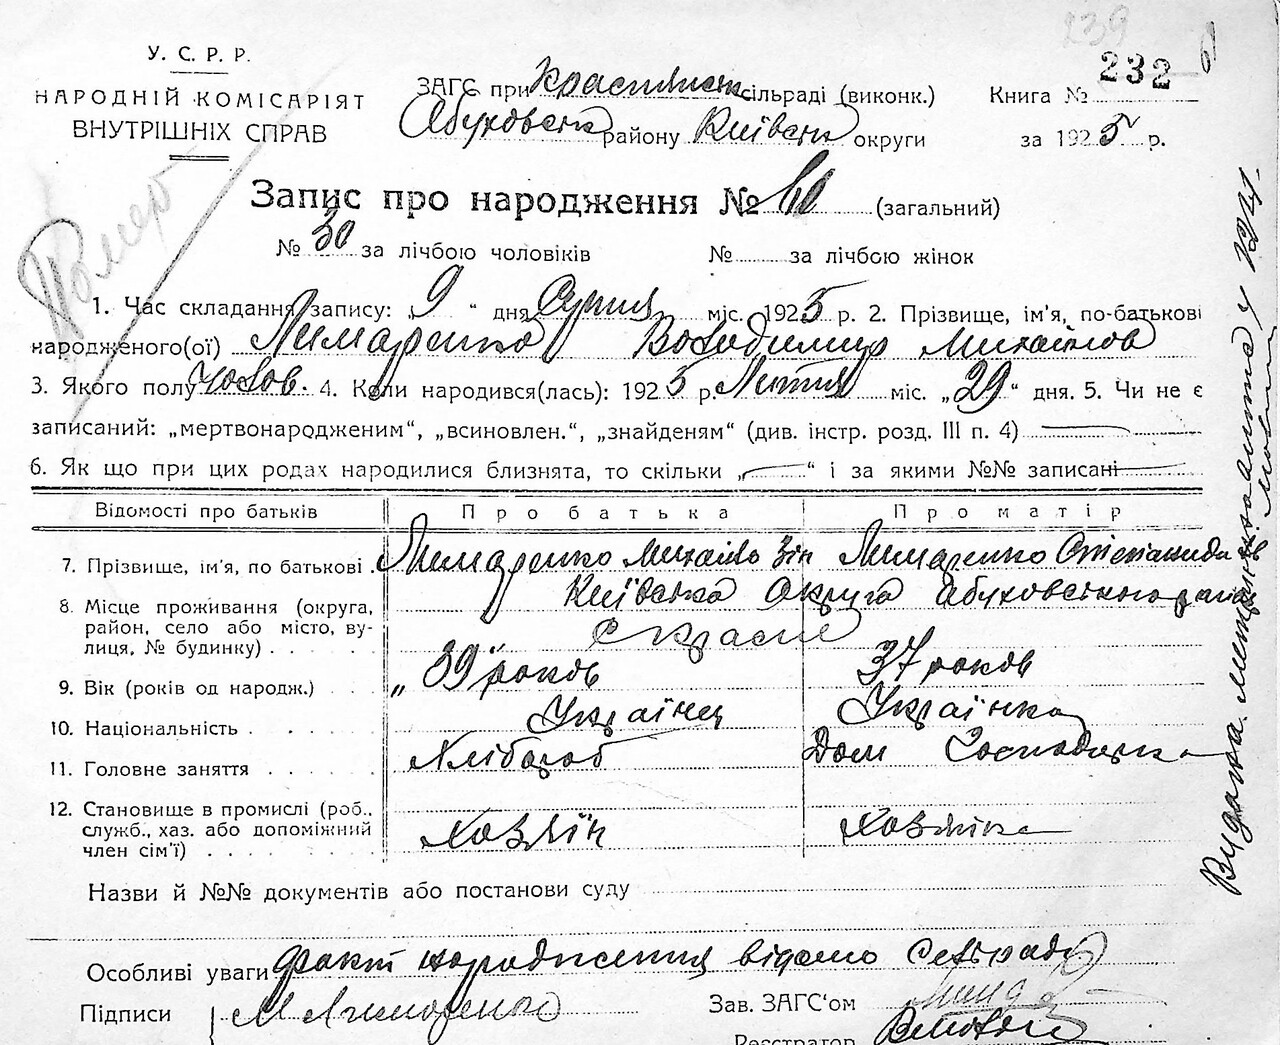 239
232
У. С. Р. Р.
НАРОДНІЙ КОМІСАРІЯТ
ВНУТРІШНІХ СПРАВ
ЗАГС при Краснянск сільраді (виконк.)
Книга №
Абуховськ району Київськ округи
за 1925 р.
Помер
Запис про народження № 60 (загальний)
№ 30 за лічбою чоловіків № за лічбою жінок
1. Час складання запису: „9“ дня Серпня міс. 1925 р. 2. Прізвище, ім'я, по-батькові
народженого(ої) Лимаренко Володимир Михайлов
3. Якого полу Чолов. 4. Коли народився(лась): 1925 р. Липня міс. „29“ дня. 5. Чи не є
записаний: „мертвонародженим“, „всиновлен.“, „знайденям“ (див. інстр. розд. III п. 4)
6. Як що при цих родах народилися близнята, то скільки „ “ і за якими №№ записані
Відомості про батьків Про батька Про матір
7. Прізвище, ім'я, по батькові Лимаренко Михайль Зін Лимаренко Степанида
8. Місце проживання (округа, район, село або місто, вулиця, № будинку) Київська Округа Абуховського району
с Красне
9. Вік (років од народж.) „39“ років 37 років
10. Національність Українец Українка
11. Головне заняття Хлібороб Дом Господарка
12. Становище в промислі (роб., служб., хаз. або допоміжний член сім'ї) Хозяїн Хозяйка
Назви й №№ документів або постанови суду
Особливі уваги факт народження відомо Сельраді
Підписи М Лимаренко
Зав. ЗАГС'ом
Реєстратор
Видана метрика